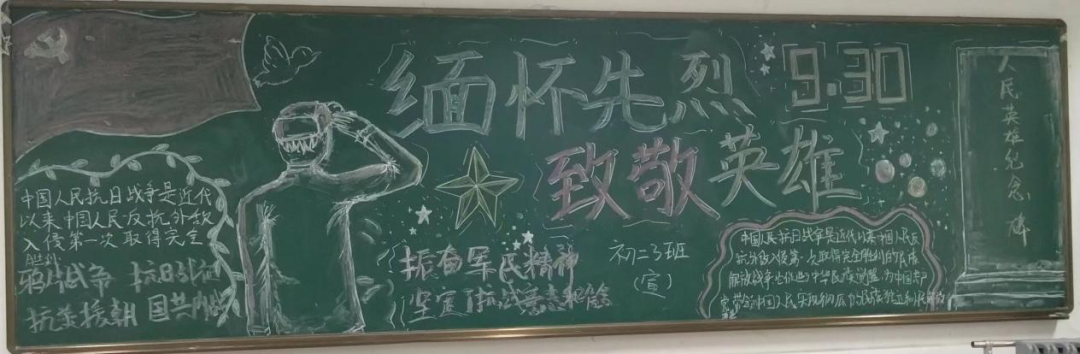 缅怀先烈
9.30
致敬英雄
人民英雄纪念碑
中国人民抗日战争是近代
以来中国人民反抗外敌
入侵第一次取得完全
胜利
鸦片战争 抗日战争
抗美援朝 国共
振奋军民精神
坚定抗战意志和
初二3班
(宣)
中国人民抗日战争是近代以来中国人民反
抗外敌入侵第一次取得完全胜利的民族
解放战争